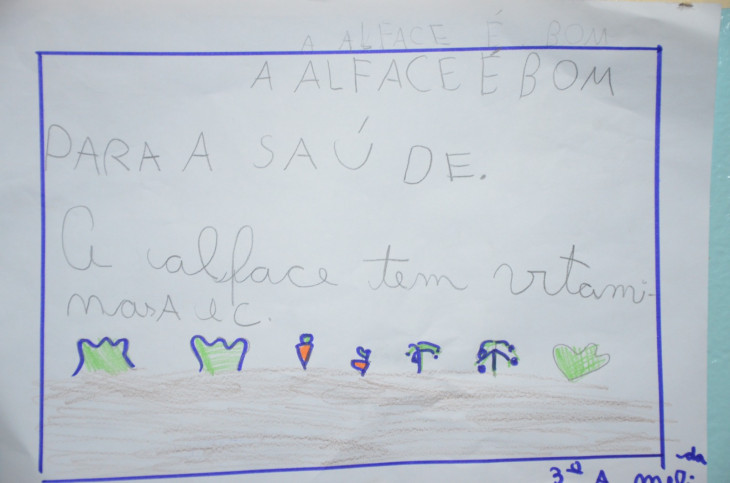 A ALFACE É BOM
A ALFACE É BOM
PARA A SAÚDE.
A alface tem vitami-
nas A e C.
da
3º A